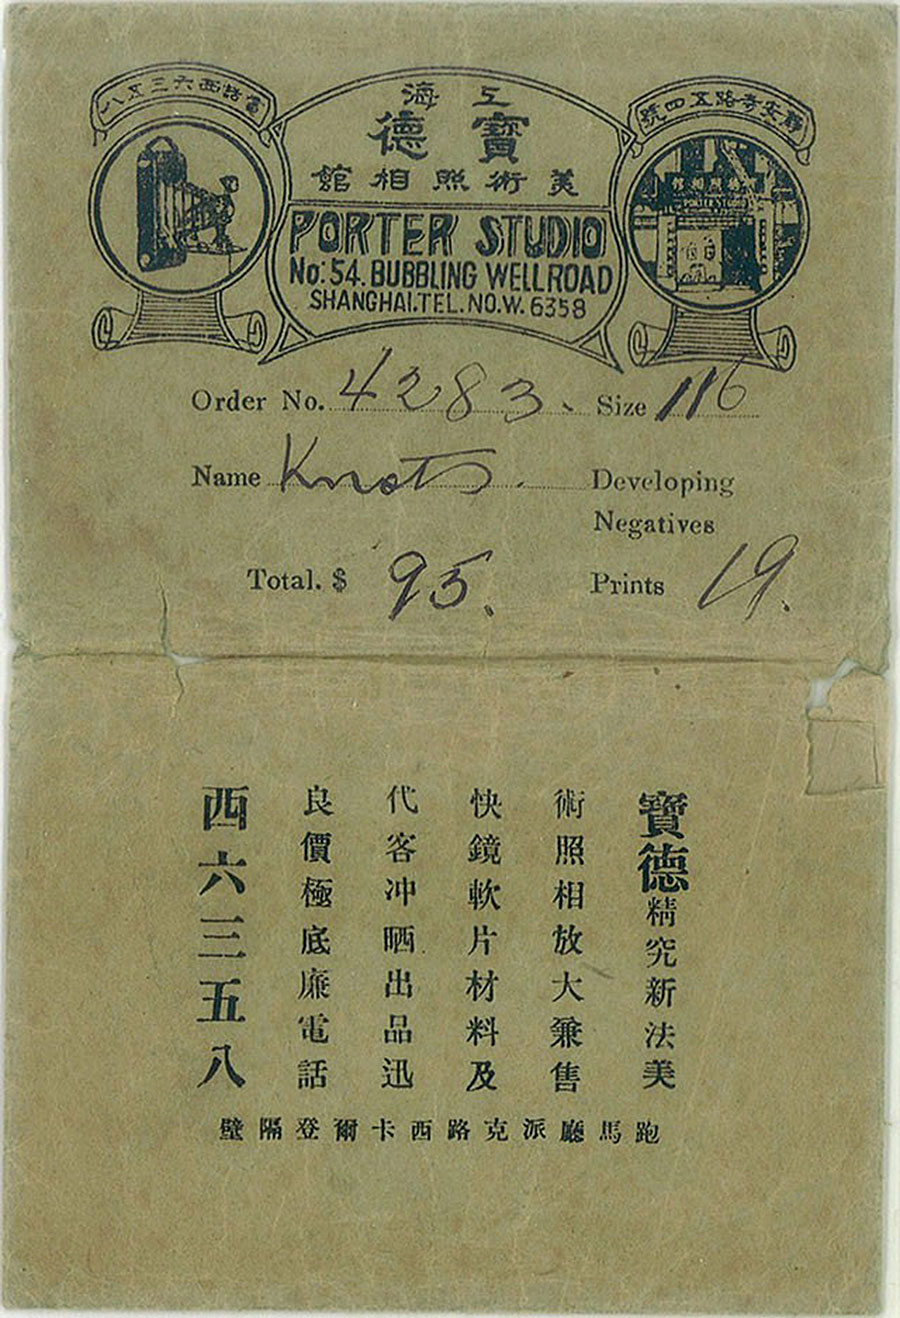 電話西六三五八
上海
寶德
美術照相館
PORTER STUDIO
No: 54. BUBBLING WELL ROAD
SHANGHAI. TEL. NO. W. 6358
靜安寺路五四號
照相館
PORTER STUDIO
Order No. 4283. Size 116
Name Knots. Developing
Negatives
Total. $ 95. Prints 19.
寶德精究新法美
術照相放大兼售
快鏡軟片材料及
代客冲晒出品迅
良價極底廉電話
西六三五八
跑馬廳派克路西卡爾登隔壁